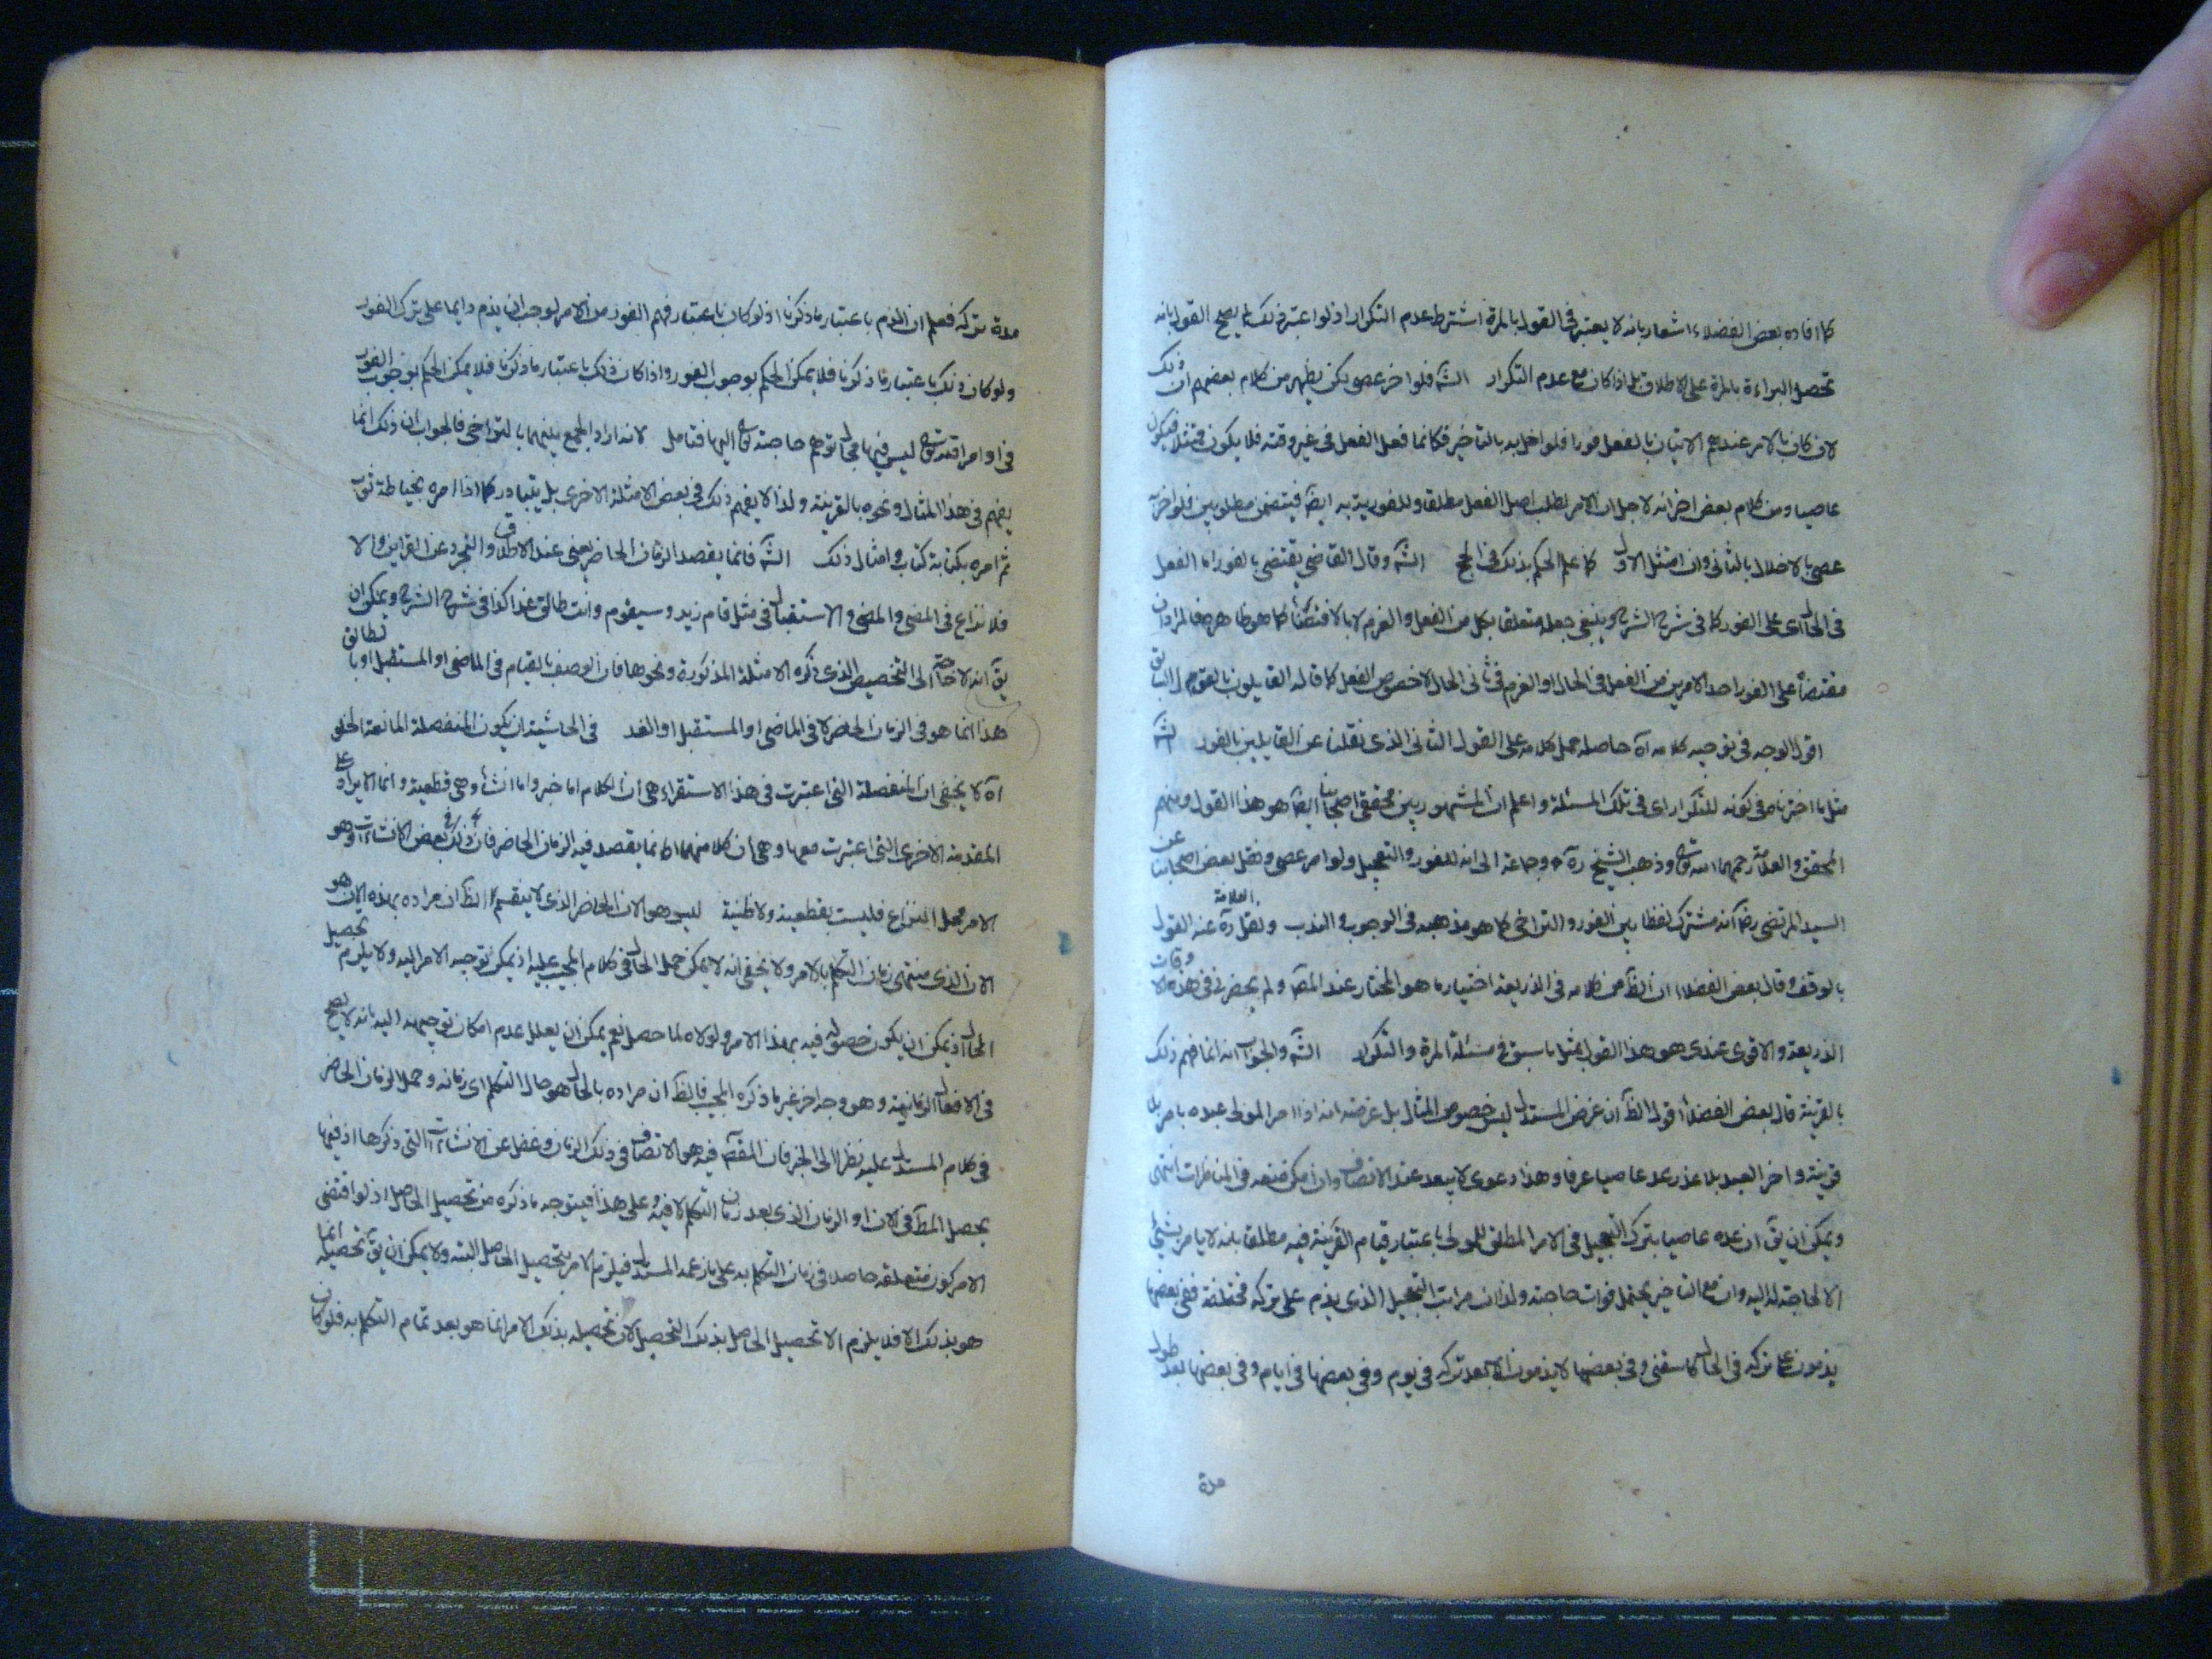 كما افاده بعض الفضلاء اشعار بانه لا يعتبر فى القول بالمرة اشتراط عدم التكرار اذ لو اعتبر ذلك لم يصح القول بانه
تحصل البراءة بالمرة على الاطلاق بل اذا كان مع عدم التكرار الشه فلو اخر عصى لكن يظهر من كلام بعضهم ان ذلك
لان كان بالامر عندهم الاتيان بالفعل فورا فلو اخل به بالتاخير فكانما فعل الفعل فى غير وقته فلا يكون ممتثلا فيكون
عاصيا ومن كلام بعض اخر انه لاجل ان الامر يطلب اصل الفعل مطلقا وللفورية به ايضا فيتضمن مطلوبين فلو اخره
عصى بالاخلال بالثانى وان امتثل الاول كما علم الحكم بذلك فى الحج الشه وقال القاضى يقتضى بالفور اما الفعل
فى الحال اى على الفور كما فى شرح الشرح وينبغى جعله متعلقا بكل من الفعل والعزم لا بالاقتضاء كما هو ظاهره فالمراد ان
مقتضاه على الفور احد الامرين من الفعل فى الحال او العزم فى ثانى الحال لا خصوص الفعل كما قاله القايلون بالقول السابق
اقول الوجه فى توجيه كلامه اه حاصله حمل كلامه على القول الثانى الذى نقلنا عن القايلين بالفور الشه
مثل ما اخترناه فى كونه للتكرار اى فى تلك المسئلة واعلم ان المشهور بين محققى اصحابنا ايضا هو هذا القول ومنهم
المحقق والعلامة رحمهما الله تع وذهب الشيخ ره وجماعة الى انه للفور والتعجيل ولو اخر عصى ونقل بعض اصحابنا عن
السيد المرتضى رض انه مشترك لفظا بين الفور والتراخى كما هو مذهبه فى الوجوب والندب ونقل العلامة ره عنه القول
بالوقف وقال بعض الفضلاء ان الظ من كلامه فى الذريعة اختياره ما هو المختار عند المص ولم يحضرنى فى هذه الاوقات
الذريعة والاقوى عندى هو هذا القول بمثل ما سبق فى مسئلة المرة والتكرار الشه والجواب انه انما فهم ذلك
بالقرينة قال بعض الفضلاء اقول الظ ان غرض المستدل ليس خصوص المثال بل غرضه انه اذا امر المولى عبده بامر بلا
قرينة واخر العبد بلا عذر عد عاصيا عرفا وهذا دعوى لا يبعد عند الانصاف وان امكن منعه فى المناظرات انتهى
ويمكن ان يق ان عده عاصيا بترك التعجيل فى الامر المطلق للمولى باعتبار قيام القرينة فيه مطلقا بانه لا يامر بشئ
الا لحاجته له اليه وان مع التاخير يحتمل فوات حاجته ولذا ان مراتب التعجيل الذى يذم على تركه مختلفة ففى بعضها
يذمون على تركه فى الحال كاسقنى وفى بعضها لا يذمون الا بعد تركه فى يوم وفى بعضها فى ايام وفى بعضها بعد طول
مدة
مدة تركه فعلم ان الذم باعتبار ما ذكرنا اذ لو كان باعتبار فهم الفور من الامر لوجب ان يذم دايما على ترك الفور
ولو كان ذلك باعتبار ما ذكرنا فلا يمكن الحكم بوجوب الفور واذا كان ذلك باعتبار ما ذكرنا فلا يمكن الحكم بوجوب الفور
فى اوامر الله تع اذ ليس فيها مجال توهم حاجته تع اليها فتامل لانه اراد الجمع بينهما بالتراخى فالجواب ان ذلك انما
يفهم فى هذا المثال ونحوه بالقرينة ولذا لا يفهم ذلك فى بعض الامثلة الاخرى بل يتبادر كما اذا امره بخياطة ثوب
ثم امره بكتابة كتاب وامثال ذلك الشه فانما يقصد الزمان الحاضر يعنى عند الاطلاق والتجرد عن القراين والا
فلا نزاع فى المضى والاستقبال فى مثل قام زيد وسيقوم وانت طالق غدا كذا فى شرح الشرح ويمكن ان
يق انه لا حاجة الى التخصيص الذى ذكره الامثلة المذكورة ونحوها فان الوصف بالقيام فى الماضى او المستقبل او بالطالق
هذا انما هو فى الزمان الحاضر لا فى الماضى او المستقبل او الغد فى الحاشية ان يكون المنفصلة المانعة الخلو
اه لا يخفى ان المنفصلة التى اعتبرت فى هذا الاستقراء هى ان الكلام اما خبر واما انشاء وهى قطعية وانما الايراد على
المقدمة الاخرى التى اعتبرت معها وهى ان كلا منهما انما يقصد فيه الزمان الحاضر فان ذلك فى بعض الانشاءات وهو
الامر محل النزاع فليست بقطعية ولا ظنية ليس هو الان الحاضر الذى لا ينقسم الظ ان مراده بهذه الان هو
الان الذى منتهى زمان التكلم بالامر ولا يخفى انه لا يمكن حمل الحال فى كلام المجيب عليه اذ يمكن توجيه الامر اليه ولا يلزم تحصيل
المحال اذ يمكن ان يكون حصوله فيه بهذا الامر ولولاه لما حصل نعم يمكن ان يعلل عدم امكان توجيهه اليه بانه لا يصح
فى الافعال الزمانية وهو وجه اخر غير ما ذكره المجيب فالظ ان مراده بالحال هو حال التكلم اى زمانه وحمل الزمان الحاضر
فى كلام المستدل عليه نظرا الى الخبر فان المقصود فيه هو الاتصاف فى ذلك الزمان وغفل عن الانشاءات التى ذكرها اذ فيها
يحصل المط فى الان او الزمان الذى بعد زمان التكلم لا فيه وعلى هذا فيتوجه ما ذكره من تحصيل الحاصل اذ لو اقتضى
الامر كون متعلقه حاصلا فى زمان التكلم به على ما زعمه المستدل فيلزم الامر بتحصيل الحاصل البته ولا يمكن ان يق تحصيله انما
هو بذلك الامر فلا يلزم الا تحصيل الحاصل بذلك التحصيل لان تحصيله بذلك الامر انما هو بعد تمام التكلم به فلو كان